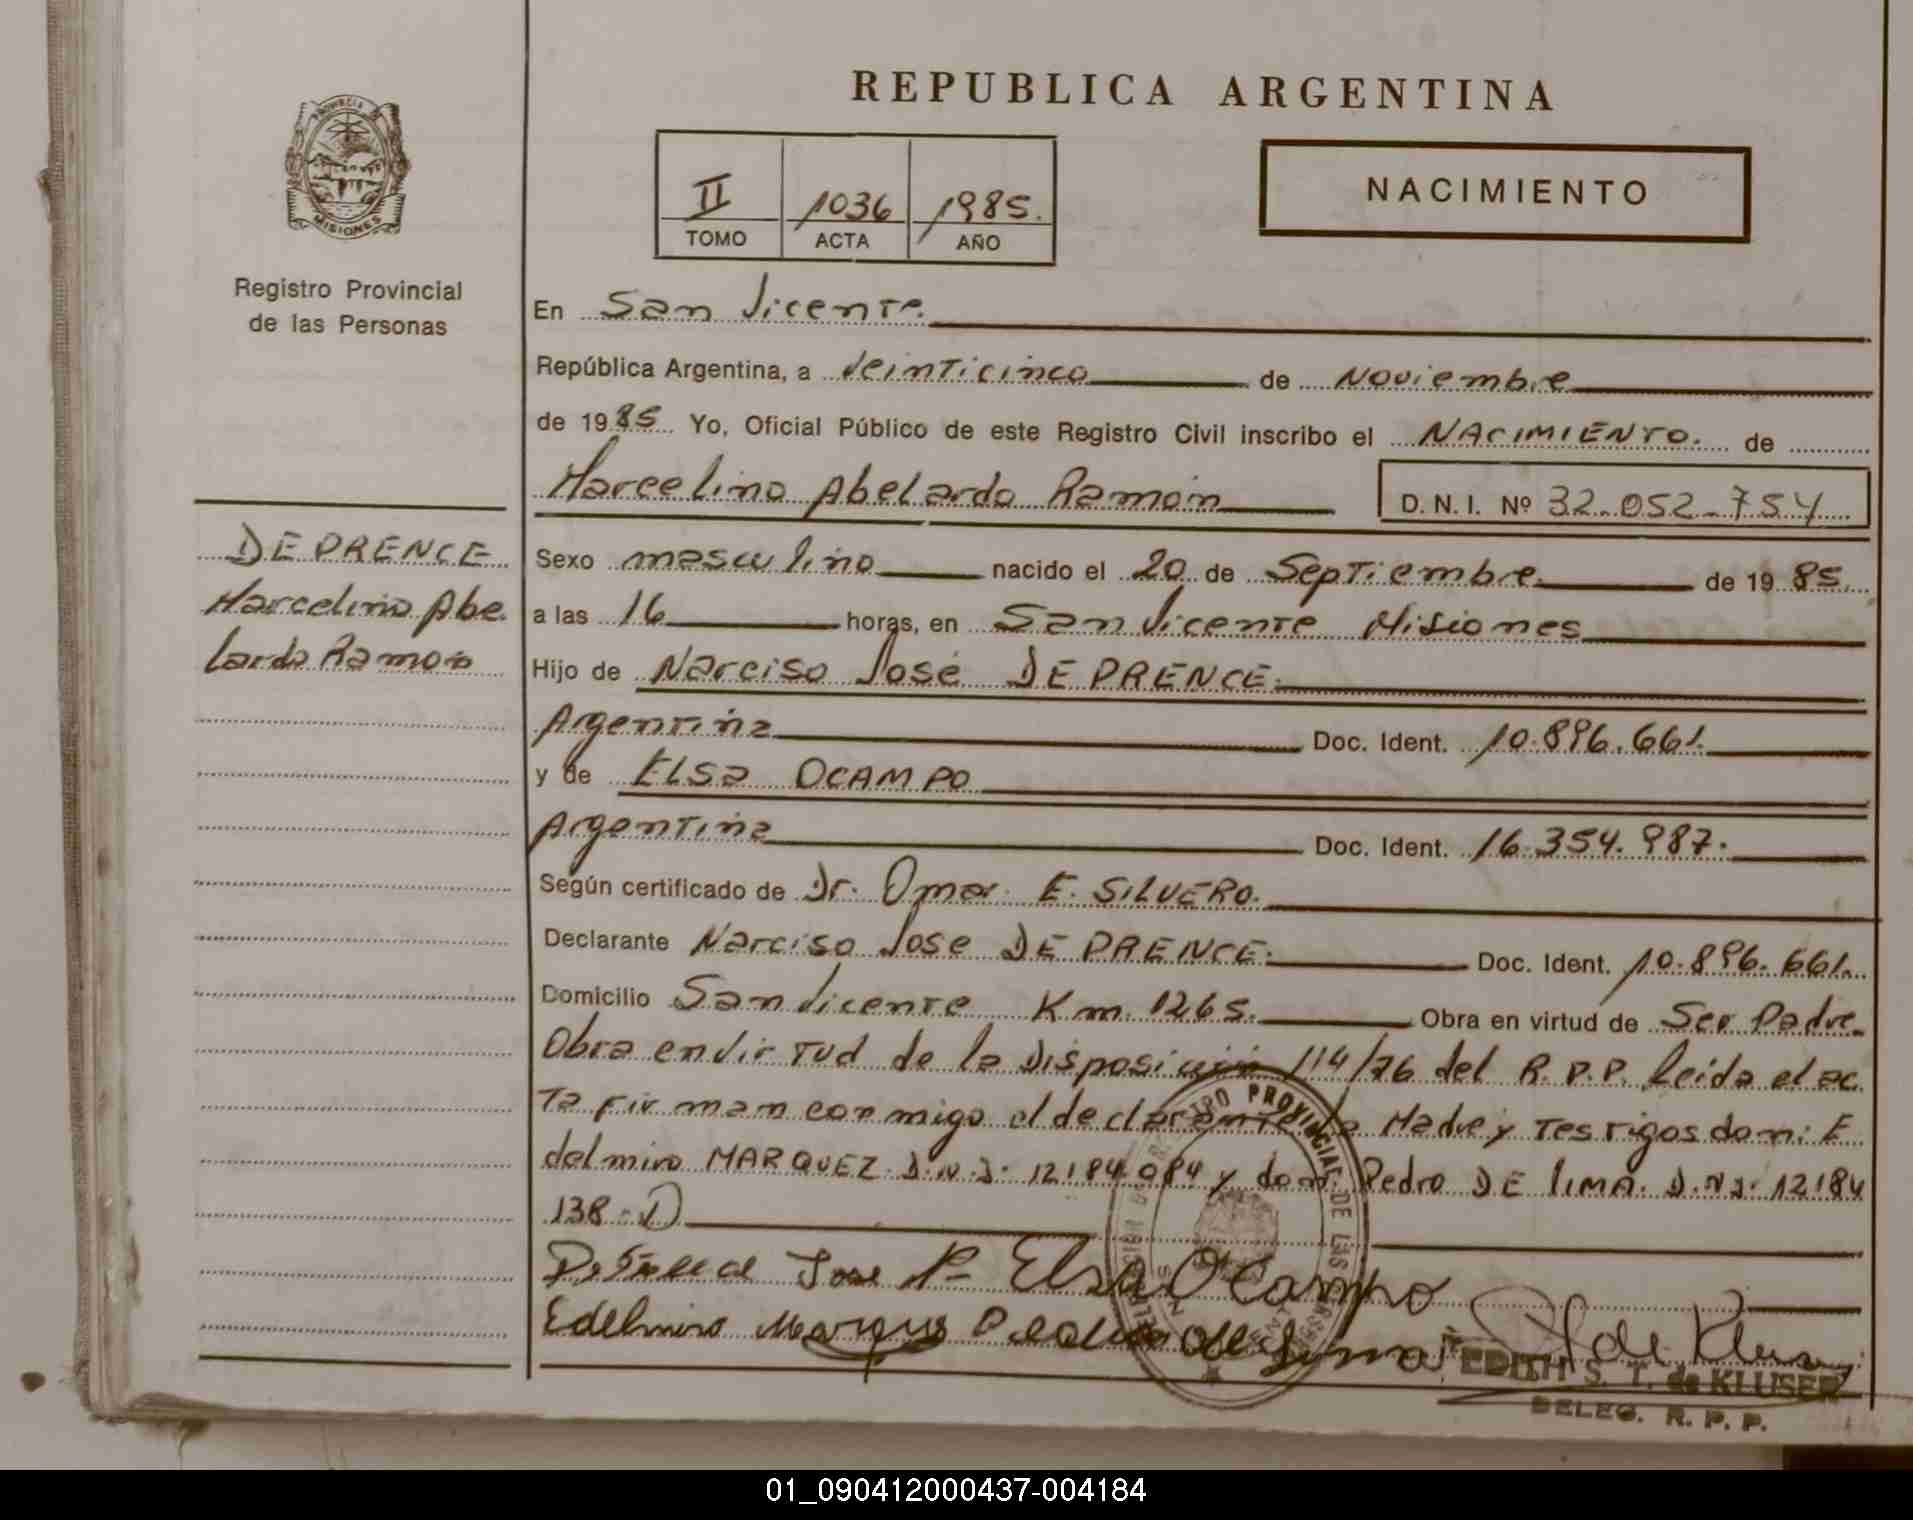 REPUBLICA ARGENTINA
PROVINCIA DE
MISIONES
Registro Provincial
de las Personas
II 1036 1985.
TOMO ACTA AÑO
NACIMIENTO
En San Vicente.
República Argentina, a Veinticinco de Noviembre
de 1985 Yo, Oficial Público de este Registro Civil inscribo el NACIMIENTO. de
Marcelino Abelardo Ramón D.N.I. Nº 32.052.754
DE PRENCE
Marcelino Abe
lardo Ramón
Sexo masculino nacido el 20 de Septiembre de 1985.
a las 16 horas, en San Vicente Misiones
Hijo de Narciso José DE PRENCE.
Argentina Doc. Ident. 10.896.661.
y de ELSA OCAMPO
Argentina Doc. Ident. 16.354.987.
Según certificado de Dr. Omar E. SILVERO.
Declarante Narciso Jose DE PRENCE. Doc. Ident. 10.896.661.
Domicilio San Vicente Km. 1265. Obra en virtud de Ser Padre
Obra en virtud de la Disposición 114/76 del R.P.P. leida el ac
ta firman conmigo el declarante la Madre y Testigos don: E
delmiro MARQUEZ D.N.I. 12184.084 y don: Pedro DE LIMA. D.N.I. 12184
138-D
Jose Elsa Ocampo
Edelmiro Marques Pedro de Lima de Kluser
EDITH S. T. de KLUSER
DELEG. R. P. P.
01_090412000437-004184